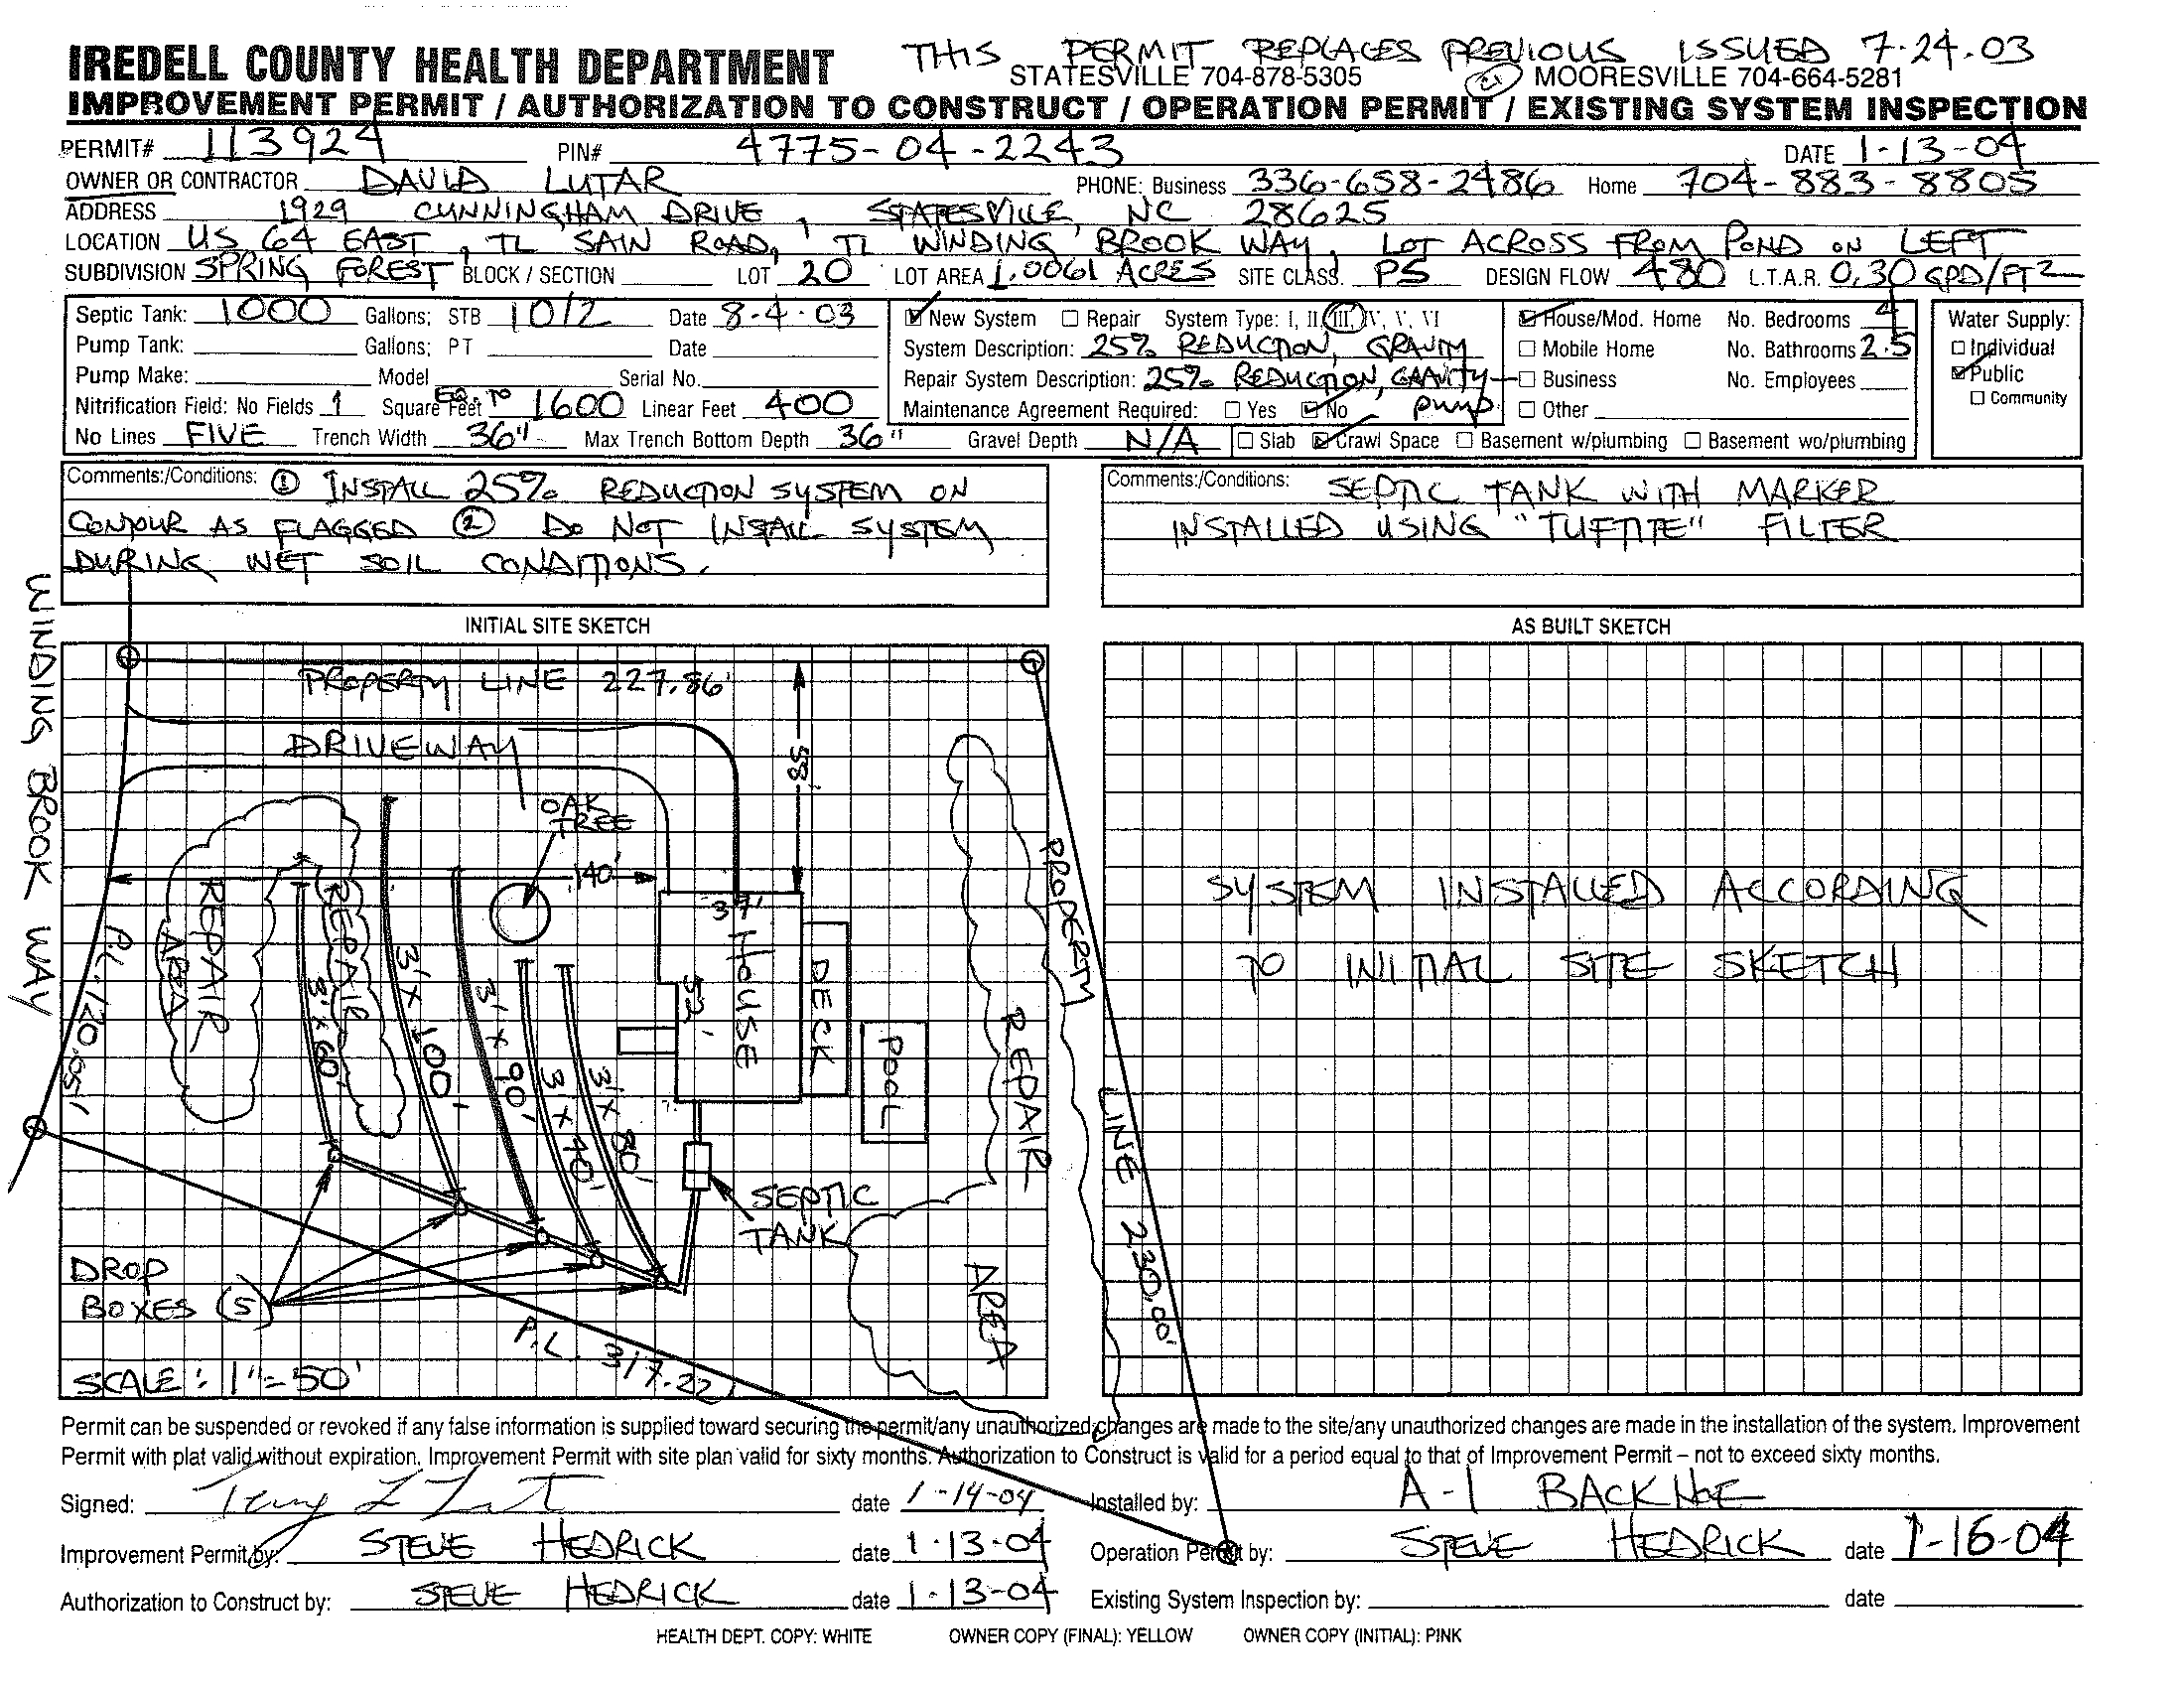 THIS PERMIT REPLACES PREVIOUS ISSUED 7-24-03
IREDELL COUNTY HEALTH DEPARTMENT STATESVILLE 704-878-5305 MOORESVILLE 704-664-5281
IMPROVEMENT PERMIT / AUTHORIZATION TO CONSTRUCT / OPERATION PERMIT / EXISTING SYSTEM INSPECTION
PERMIT# 113924 PIN# 4775-04-2243 DATE 1-13-04
OWNER OR CONTRACTOR DAVID LUTAR PHONE: Business 336-658-2486 Home 704-883-8805
ADDRESS 1929 CUNNINGHAM DRIVE, STATESVILLE, NC 28625
LOCATION US 64 EAST, TL SAIN ROAD, TL WINDING BROOK WAY, LOT ACROSS FROM POND ON LEFT
SUBDIVISION SPRING FOREST BLOCK / SECTION LOT 20 LOT AREA 1.0061 ACRES SITE CLASS. PS DESIGN FLOW 480 L.T.A.R. 0.30 GPD/FT2
Septic Tank: 1000 Gallons; STB 1012 Date 8-4-03
Pump Tank: Gallons; PT Date
Pump Make: Model Serial No.
Nitrification Field: No Fields 1 Square Feet EQ. TO 1600 Linear Feet 400
No Lines FIVE Trench Width 36" Max Trench Bottom Depth 36" Gravel Depth N/A
New System Repair System Type: I, II, III, IV, V, VI
System Description: 25% REDUCTION, GRAVITY
Repair System Description: 25% REDUCTION, GRAVITY-
Maintenance Agreement Required: Yes No pump
House/Mod. Home No. Bedrooms 4
Mobile Home No. Bathrooms 2.5
Business No. Employees
Other
Slab Crawl Space Basement w/plumbing Basement wo/plumbing
Water Supply:
Individual
Public
Community
Comments:/Conditions: ① INSTALL 25% REDUCTION SYSTEM ON
CONTOUR AS FLAGGED ② DO NOT INSTALL SYSTEM
DURING WET SOIL CONDITIONS.
Comments:/Conditions: SEPTIC TANK WITH MARKER
INSTALLED USING "TUFTITE" FILTER
INITIAL SITE SKETCH
WINDING BROOK WAY
PROPERTY LINE 227.86'
DRIVEWAY
58'
OAK
TREE
140'
REPAIR
AREA
REPAIR
P.L. 120.05'
3' X 60'
3' X 100'
3' X 90'
3' X 70'
3' X 80'
37'
HOUSE
53'
DECK
POOL
REPAIR
AREA
PROPERTY LINE 230.00'
SEPTIC
TANK
DROP
BOXES (5)
P.L. 317.22'
SCALE: 1"=50'
AS BUILT SKETCH
SYSTEM INSTALLED ACCORDING
TO INITIAL SITE SKETCH
Permit can be suspended or revoked if any false information is supplied toward securing the permit/any unauthorized changes are made to the site/any unauthorized changes are made in the installation of the system. Improvement
Permit with plat valid without expiration. Improvement Permit with site plan valid for sixty months. Authorization to Construct is valid for a period equal to that of Improvement Permit – not to exceed sixty months.
Signed: date 1-14-04 Installed by: A-1 BACKHOE
Improvement Permit by: STEVE HEDRICK date 1-13-04 Operation Permit by: STEVE HEDRICK date 1-16-04
Authorization to Construct by: STEVE HEDRICK date 1-13-04 Existing System Inspection by: date
HEALTH DEPT. COPY: WHITE OWNER COPY (FINAL): YELLOW OWNER COPY (INITIAL): PINK